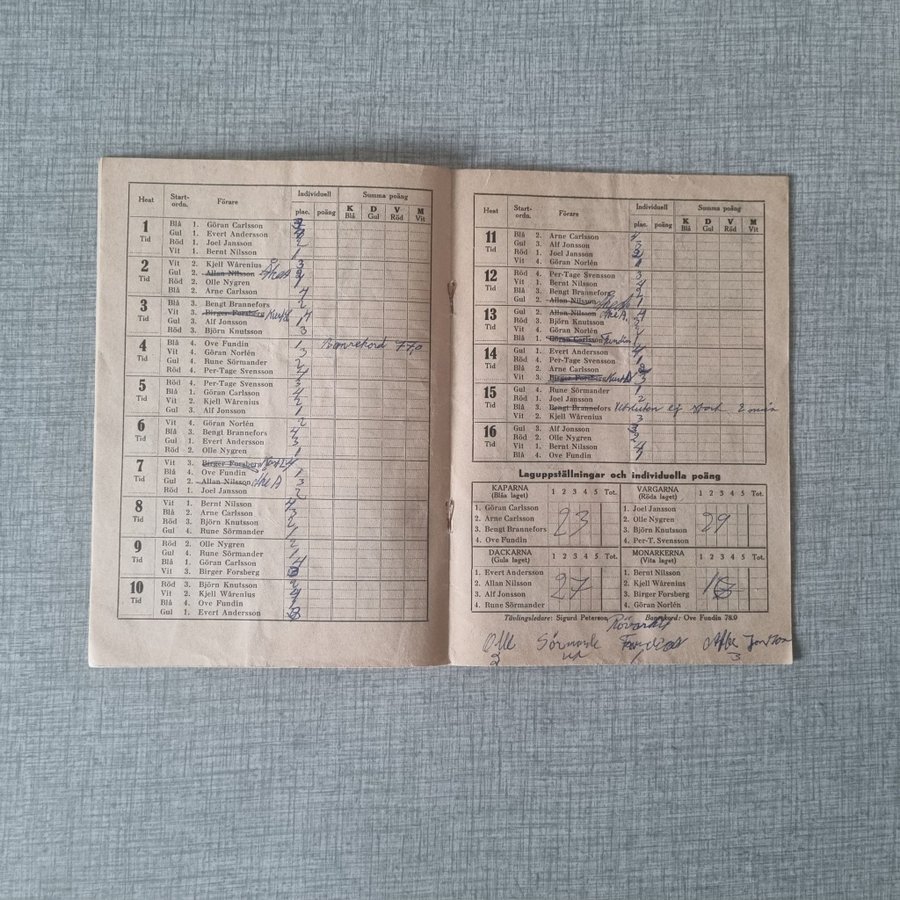 Heat Start-ordn. Förare Individuell plac. poäng Summa poäng K Blå D Gul V Röd M Vit
1 Tid
Blå 1. Göran Carlsson
Gul 1. Evert Andersson
Röd 1. Joel Jansson 2
Vit 1. Bernt Nilsson 1
2 Tid
Vit 2. Kjell Wärenius 3
Gul 2. Allan Nilsson Åke A
Röd 2. Olle Nygren 1
Blå 2. Arne Carlsson 4
3 Tid
Blå 3. Bengt Brannefors 2
Vit 3. Birger Forsberg 4
Gul 3. Alf Jonsson 1
Röd 3. Björn Knutsson 3
4 Tid
Blå 4. Ove Fundin 1 Banrekord 77,0
Vit 4. Göran Norlén 3
Gul 4. Rune Sörmander 2
Röd 4. Per-Tage Svensson 4
5 Tid
Röd 4. Per-Tage Svensson 3
Blå 1. Göran Carlsson 4
Vit 2. Kjell Wärenius 2
Gul 3. Alf Jonsson 1
6 Tid
Vit 4. Göran Norlén 2
Blå 3. Bengt Brannefors 4
Gul 1. Evert Andersson 3
Röd 2. Olle Nygren 1
7 Tid
Vit 3. Birger Forsberg 4
Blå 4. Ove Fundin 1
Gul 2. Allan Nilsson Åke A 3
Röd 1. Joel Jansson 2
8 Tid
Vit 1. Bernt Nilsson 4
Blå 2. Arne Carlsson 3
Röd 3. Björn Knutsson 2
Gul 4. Rune Sörmander 1
9 Tid
Röd 2. Olle Nygren 2
Gul 4. Rune Sörmander 1
Blå 1. Göran Carlsson 4
Vit 3. Birger Forsberg
10 Tid
Röd 3. Björn Knutsson 2
Vit 2. Kjell Wärenius
Blå 4. Ove Fundin 1
Gul 1. Evert Andersson
Heat Start-ordn. Förare Individuell plac. poäng Summa poäng K Blå D Gul V Röd M Vit
11 Tid
Blå 2. Arne Carlsson 4
Gul 3. Alf Jonsson 3
Röd 1. Joel Jansson
Vit 4. Göran Norlén
12 Tid
Röd 4. Per-Tage Svensson 3
Vit 1. Bernt Nilsson 4
Blå 3. Bengt Brannefors 2
Gul 2. Allan Nilsson Åke A 1
13 Tid
Gul 2. Allan Nilsson Åke A.
Röd 3. Björn Knutsson
Vit 4. Göran Norlén
Blå 1. Göran Carlsson Fundin 1
14 Tid
Gul 1. Evert Andersson
Röd 4. Per-Tage Svensson 1
Blå 2. Arne Carlsson
Vit 3. Birger Forsberg
15 Tid
Gul 4. Rune Sörmander 1
Röd 1. Joel Jansson 2
Blå 3. Bengt Brannefors
Vit 2. Kjell Wärenius 3
16 Tid
Gul 3. Alf Jonsson
Röd 2. Olle Nygren 2
Vit 1. Bernt Nilsson 4
Blå 4. Ove Fundin 1
Laguppställningar och individuella poäng
KAPARNA (Blåa laget) 1 2 3 4 5 Tot.
1. Göran Carlsson
2. Arne Carlsson
3. Bengt Brannefors
4. Ove Fundin
23
VARGARNA (Röda laget) 1 2 3 4 5 Tot.
1. Joel Jansson
2. Olle Nygren
3. Björn Knutsson
4. Per-T. Svensson
29
DACKARNA (Gula laget) 1 2 3 4 5 Tot.
1. Evert Andersson
2. Allan Nilsson
3. Alf Jonsson
4. Rune Sörmander
27
MONARKERNA (Vita laget) 1 2 3 4 5 Tot.
1. Bernt Nilsson
2. Kjell Wärenius
3. Birger Forsberg
4. Göran Norlén
Tävlingsledare: Sigurd Peterson Banrekord: Ove Fundin 78.0
Olle Sörmande Jonsson
2 3